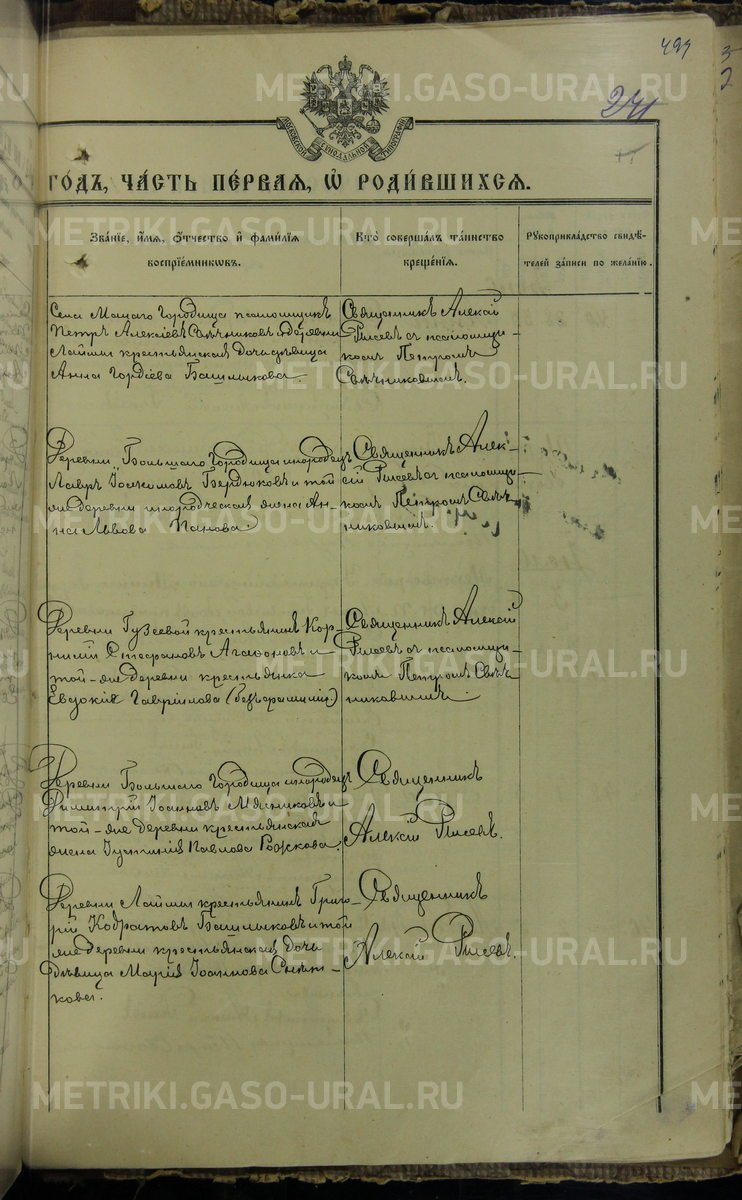 499
241
МОСКОВСКОЙ СѴНОДАЛЬНОЙ ТИПОГРАФІИ
ГО́ДЪ, ЧА́СТЬ ПЕ́РВАЯ, Ѡ҆ РОДИ́ВШИХСЯ.
ЗВА́НІЕ, И҆́МЯ, Ѻ҆́ТЧЕСТВО И҆ ФАМИ́ЛІЯ ВОСПРІЕ́МНИКОВЪ.
КТО̀ СОВЕРША́ЛЪ ТА́ИНСТВО КРЕЩЕ́НІЯ.
РУКОПРИКЛА́ДСТВО СВИДѢ́ТЕЛЕЙ ЗА́ПИСИ ПО ЖЕЛА́НІЮ.
Села Малаго Городища псаломщикъ
Петръ Алексіевъ Свѣчниковъ и деревни
Лаймы крестьянская дочь дѣвица
Анна Гордіева Башлыкова.
Священникъ Алексій
Рысевъ съ псаломщи-
комъ Петромъ
Свѣчниковымъ.
Деревни Большаго Городища инородецъ
Лавръ Іоакимовъ Бердюковъ и той
же деревни инородческая жена Ан-
на Львова Панова.
Священникъ Алек-
сій Рысевъ съ псаломщи-
комъ Петромъ Свѣч-
никовымъ.
Деревни Гузеевой крестьянинъ Кор-
нилій Стефановъ Агафоновъ и
той-же деревни крестьянка
Евдокія Гавріилова (безъ фамиліи)
Священникъ Алексій
Рысевъ съ псаломщи-
комъ Петромъ Свѣч-
никовымъ.
Деревни Большаго Городища инородецъ
Димитрій Іоанновъ Мясниковъ и
той-же деревни крестьянская
жена Іустинія Павлова Рожкова.
Священникъ
Алексій Рысевъ.
Деревни Лаймы крестьянинъ Григо-
рій Кодратовъ Башлыковъ и той
же деревни крестьянская дочь
дѣвица Марія Іоаннова
Священникъ
Алексій Рысевъ.
METRIKI.GASO-URAL.RU